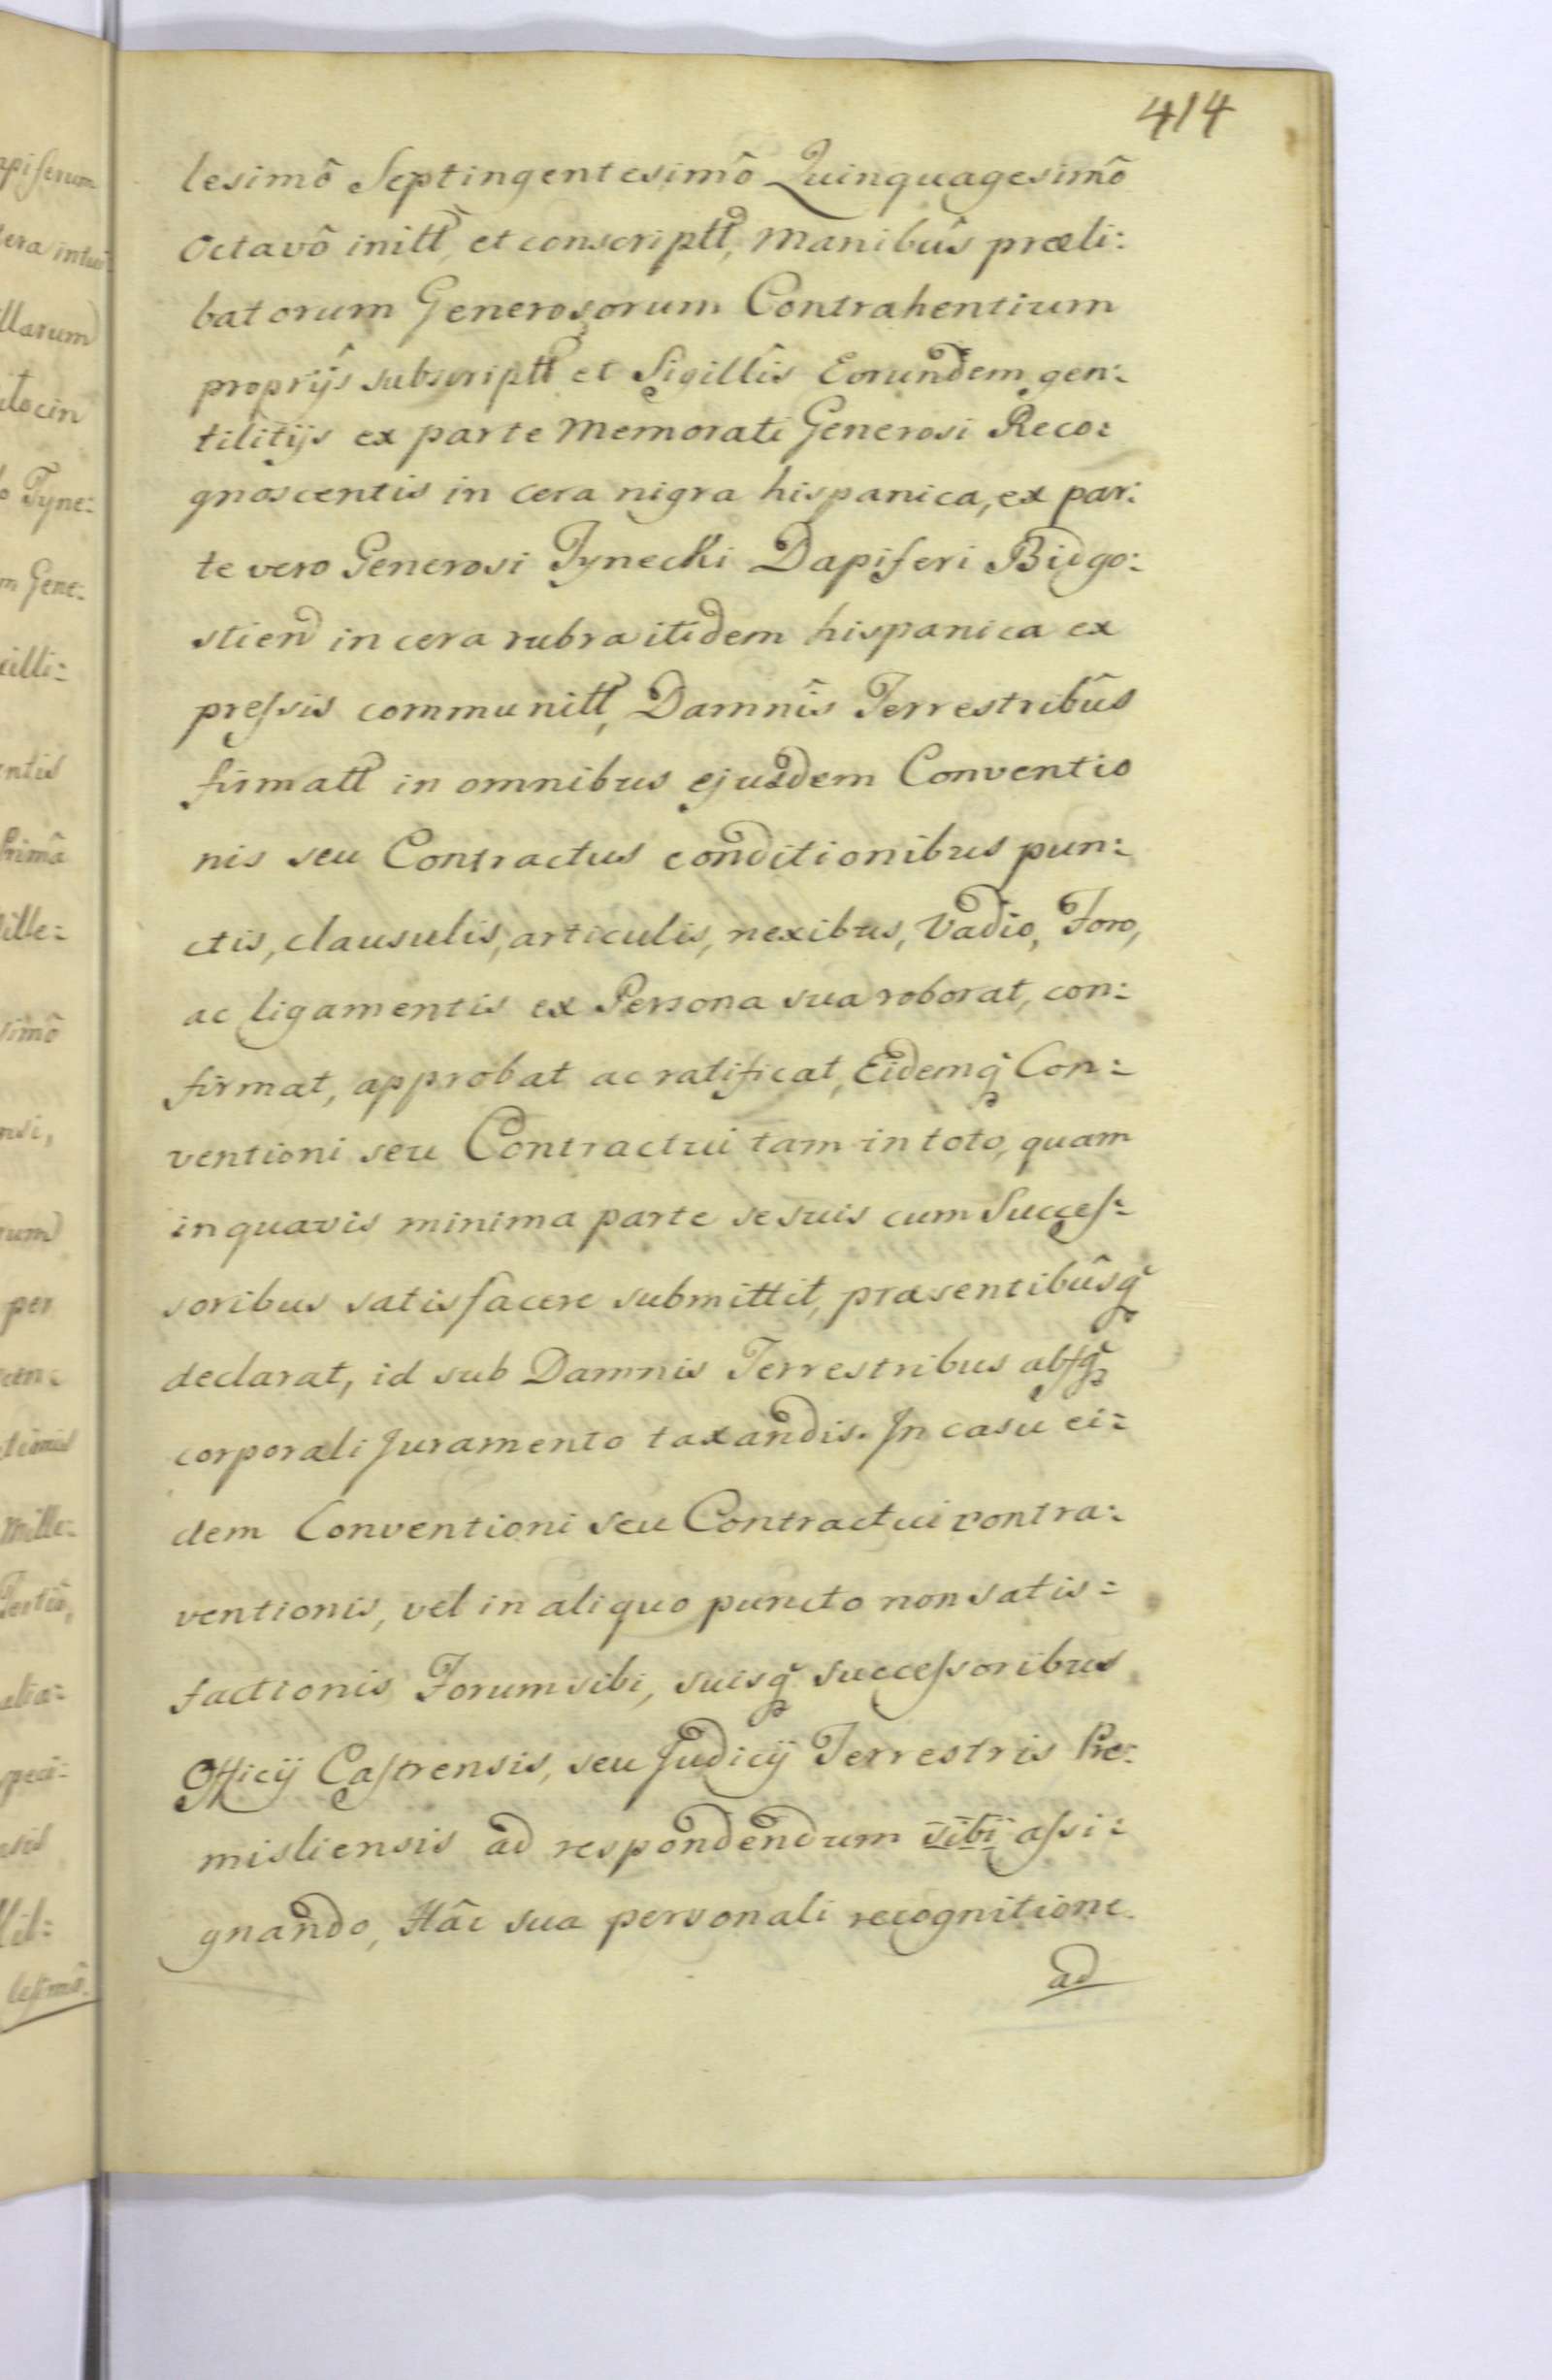 414
lesimô Septingentesimô Quinquagesimô
Octavô initt, et conscriptt, Manibûs præli:
batorum Generosorum Contrahentium
proprijs subscriptt et Sigillîs Eorundem gen:
tilitijs ex parte Memorati Generosi Reco:
gnoscentis in cera nigra hispanica, ex par:
te vero Generosi Tynecki Dapiferi Bidgo:
stien in cera rubra itidem hispanica ex
preſsis communitt, Damnîs Terrestribûs
firmatt in omnibus ejusdem Conventio
nis seu Contractus conditionibus pun:
ctis, clausulis, articulis, nexibus, Vadio, Foro,
ac ligamentis ex Persona sua roborat, con:
firmat, approbat ac ratificat, Eidemq̃ Con:
ventioni seu Contractui tam in toto, quam
in quavis minima parte se suis cum Succeſ:
soribus satisfacere submittit, præsentibûsq̃
declarat, id sub Damnis Terrestribus abſq̃
corporali Juramento taxandis. In casu ei:
dem Conventioni seu Contractui contra:
ventionis, vel in aliquo puncto non satis:
factionis Forum sibi, suisq̃ succeſsoribus
Officij Caſtrensis, seu Judicij Terrestris Pre:
misliensis ad respondendum sibi aſsi:
gnando, Hâc sua personali recognitione
ad